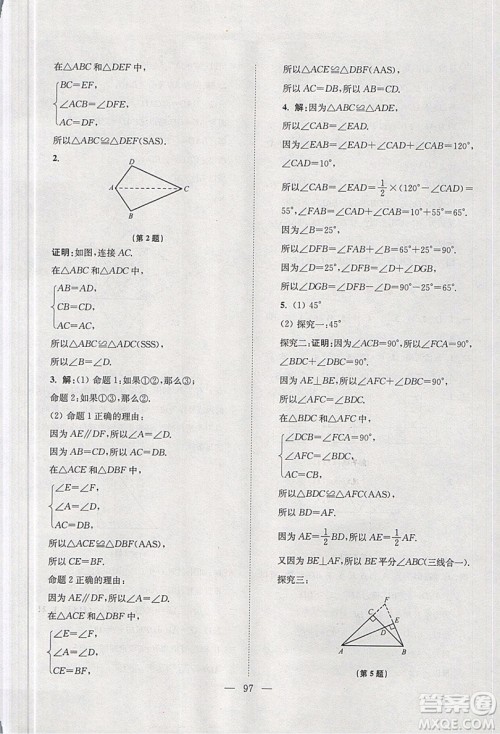 在△ABC和△DEF中,
BC=EF,
∠ACB=∠DFE,
AC=DF,
所以△ABC≌△DEF(SAS).
2.
D
A
C
B
(第2题)
证明:如图,连接AC.
在△ABC和△ADC中,
AB=AD,
CB=CD,
AC=AC,
所以△ABC≌△ADC(SSS),
所以∠B=∠D.
3. 解:(1) 命题1:如果①②,那么③;
命题2:如果①③,那么②.
(2) 命题1正确的理由:
因为AE∥DF,所以∠A=∠D.
因为AB=CD,所以AC=DB.
在△ACE和△DBF中,
∠E=∠F,
∠A=∠D,
AC=DB,
所以△ACE≌△DBF(AAS),
所以CE=BF.
命题2正确的理由:
因为AE∥DF,所以∠A=∠D.
在△ACE和△DBF中,
∠E=∠F,
∠A=∠D,
CE=BF,
所以△ACE≌△DBF(AAS),
所以AC=DB,所以AB=CD.
4. 解:因为△ABC≌△ADE,
所以∠CAB=∠EAD.
因为∠EAB=∠EAD+∠CAD+∠CAB=120°,
∠CAD=10°,
所以∠CAB=∠EAD=1/2×(120°-10°)=
55°,所以∠FAB=∠CAD+∠CAB=10°+55°=
65°.
因为∠B=25°,
所以∠DFB=∠FAB+∠B=65°+25°=90°.
因为∠DFB=∠D+∠DGB,∠D=∠B=25°,
所以∠DGB=∠DFB-∠D=90°-25°=65°.
5. (1) 45°
(2) 探究一:45°
探究二:证明:因为∠CFA+∠CAF=90°,
∠BFE+∠DBC=90°,
所以∠CAF=∠DBC.
因为AE⊥BE,所以∠AEB=90°.
在△AFC和△BDC中,
∠DCB=∠FCA=90°,
∠AFC=∠BDC,
AC=BC,
所以△AFC≌△BDC(AAS),
所以AF=BD.
因为AE=1/2BD,所以AE=1/2AF.
又因为BE⊥AF,
所以BE平分∠ABC(三线合一).
探究三:
F
C
E
D
A
B
(第5题)
97
答案圈
MXQE.COM